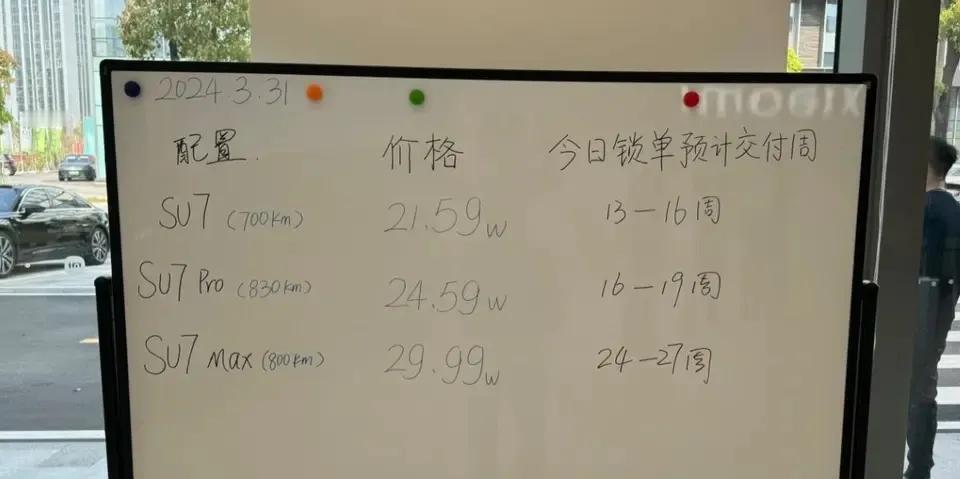 2024.3.31
xiaomi
配置. 价格 今日锁单预计交付周
SU7 (700km) 21.59w 13-16周
SU7 Pro (830km) 24.59w 16-19周
SU7 Max (800km) 29.99w 24-27周